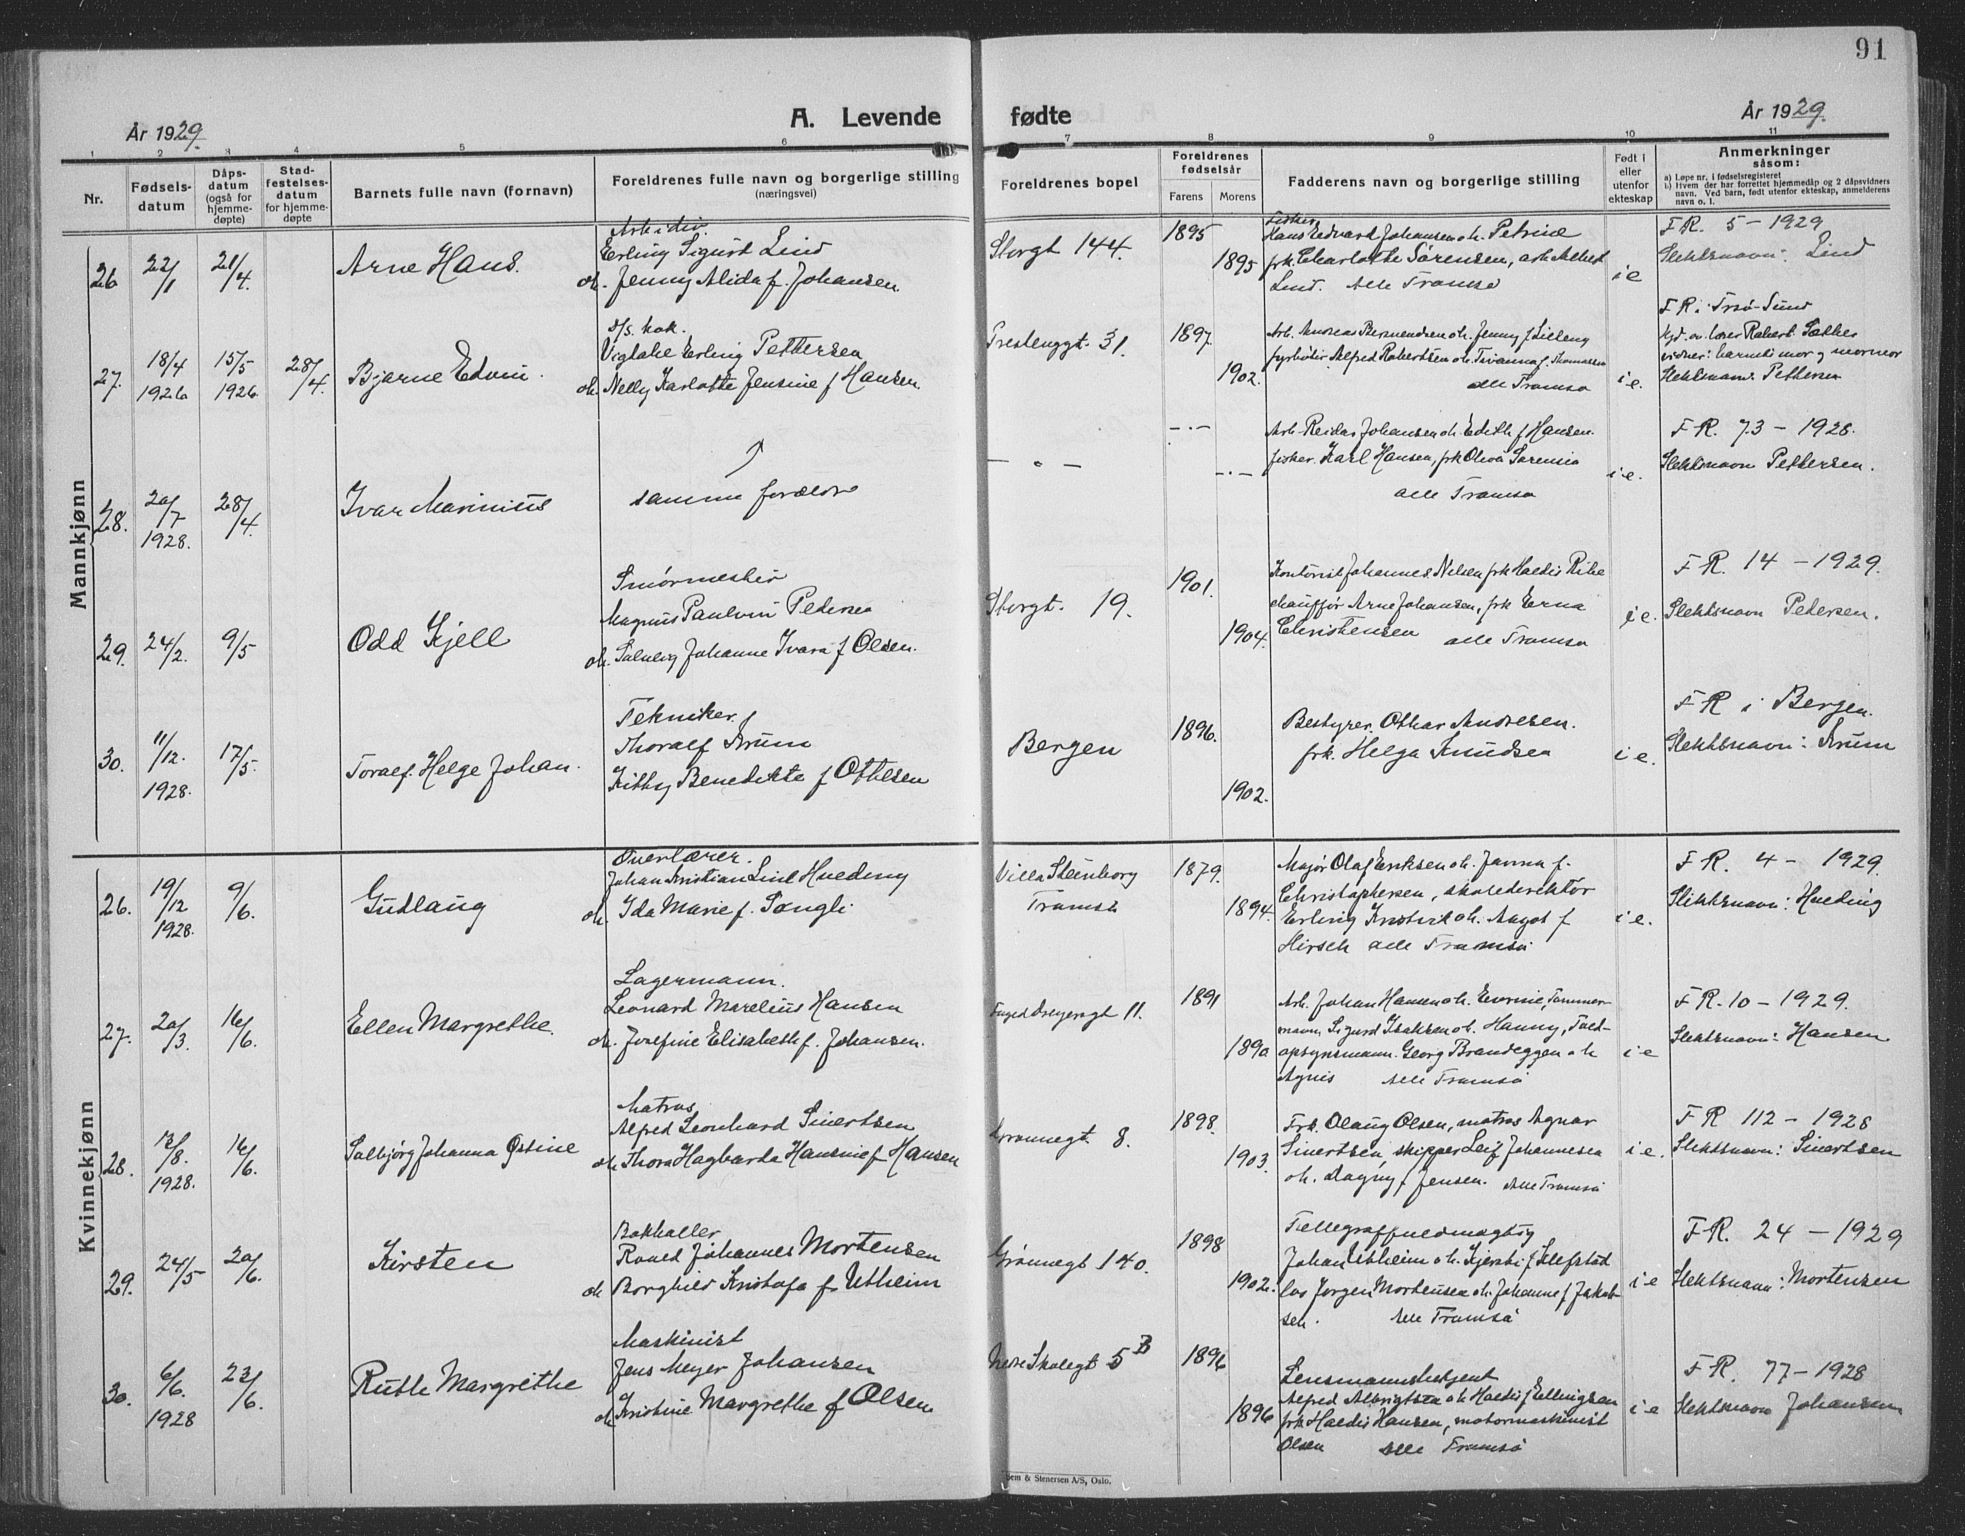 91
A. Levende fødte
År 1929.
År 1929.
1 2 3 4 5 6 7 8 9 10 11
Nr.
Fødsels-
datum
Dåps-
datum
(også for
hjemme-
døpte)
Stad-
festelses-
datum
for hjemme-
døpte
Barnets fulle navn (fornavn)
Foreldrenes fulle navn og borgerlige stilling
(næringsvei)
Foreldrenes bopel
Foreldrenes
fødselsår
Farens Morens
Fadderens navn og borgerlige stilling
Født i
eller
utenfor
ekteskap
Anmerkninger
såsom:
a) Løpe nr. i fødselsregisteret
b) Hvem der har forrettet hjemmedåp og 2 dåpsvidners
navn. Ved barn, født utenfor ekteskap, anmelderens
navn o. l.
Mannkjønn
26 22/1 21/4. Arne Hans.
Arb i div.
Erling Sigurd Lind
oh. Jenny Alida f. Johansen
Storgt 144. 1895 1895
Fisker
Hans Edvard Johansen oh. Petrine
frk Charlotte Sørensen, arb Albert
Lind. Alle Tromsø
i e
F.R. 5 - 1929
Slektsnavn: Lind
27. 18/4 1926 15/5 1926. 28/4 Bjarne Edvin.
d/s. kok.
Erling Pettersen
oh. Nelly Karlotte Jensine f Hansen
31. 1897. 1902.
Arb. Andreas oh. Jenny f
fyrbøter Alfred Robertsen oh. f. Thomassen
alle Tromsø
i e.
F R i Tr.sø-Sund
vidner: barnets mor og mormor
Slektsnavn Pettersen
28. 20/7 1928. 28/4. Ivar Marinius
samme foreldre
- " - - · - - · -
Arb. Reidar Johansen oh. Edith f Hansen.
fisker. Karl Hansen, frk
alle Tromsø
i e.
F R. 73 - 1928.
Slektsnavn Pettersen.
29. 24/2. 9/5 Odd Kjell
Magnus Pedersen
oh. Solveig Johanne Ivara f Olsen.
Storgt. 19. 1901. 1904.
Kontorist Johannes Nilsen frk Haldis
chauffør Arne Johansen, frk Erna
Christensen alle Tromsø
i e.
F R. 14 - 1929.
Slektsnavn Pedersen.
30. 11/12. 1928. 17/5. Toralf Helge Johan.
Tekniker
Thoralf Krum
Kitty Benedikte f Ottesen
Bergen 1896. 1902.
Bestyrer Othar Andresen.
frk. Helga Knudsen
i e.
F R i Bergen.
Slektsnavn: Krum
Kvinnekjønn
26. 19/12 1928. 9/6. Gudlaug
Overlærer.
Johan Kristian Lind Hveding
oh. Ida Marie f. Songli
Villa Steinborg
Tromsø
1879. 1894.
Major Olaf Eriksen oh. f.
Christophersen, skoledirektør
Erling oh. Aagot f
Hirsch alle Tromsø
i e.
F R. 4 - 1929.
Slektsnavn: Hveding
27. 20/3 16/6. Ellen Margrethe.
Lagermann.
Leonard Marelius Hansen
oh. Josefine Elisabeth f. Johansen.
11. 1891 1890
Arb. Johan Hansen oh. Tømmer-
mann Sigurd Isaksen oh. Hanny, Told-
opsynsmann. Georg Brandeggen oh
Agnis Alle Tromsø
i e
F R. 10 - 1929.
Slektsnavn: Hansen
28. 12/8. 1928. 16/6. Solbjørg Johanna Østine
Matros
Alfred Leonhard Sivertsen
oh. Thora Hagbarda Hansine f Hansen
8. 1898. 1903.
Frk. Olaug Olsen, matros Agnar
Sivertsen skipper Leif Johannesen
oh. Dagny f Jensen. Alle Tromsø
i e.
F R 112 - 1928
Slektsnavn: Sivertsen
29. 24/5 20/6. Kirsten
Bokholler
Roald Johannes Mortensen
oh Borghild Kristofa f Utheim
Grønnegt 140. 1898 1902.
Johan Utheim oh. f
Jørgen Mortensen oh. Johanne f Jakob-
sen. Alle Tromsø
i e
F.R. 24 - 1929
Slektsnavn: Mortensen
30. 6/6. 1928 23/6. Ruth Margrethe
Maskinist
Jens Meyer Johansen
oh Kristine Margrethe f Olsen
Nedre Skolegt 5 B 1896 1896
Lensmannsbetjent
Alfred Albrigtsen oh Haldis f Ellingsen
frk Haldis Hansen, motormaskinist
Olsen alle Tromsø
i e
F R. 77 - 1928
Slektsnavn Johansen
Stenersen A/S, Oslo.